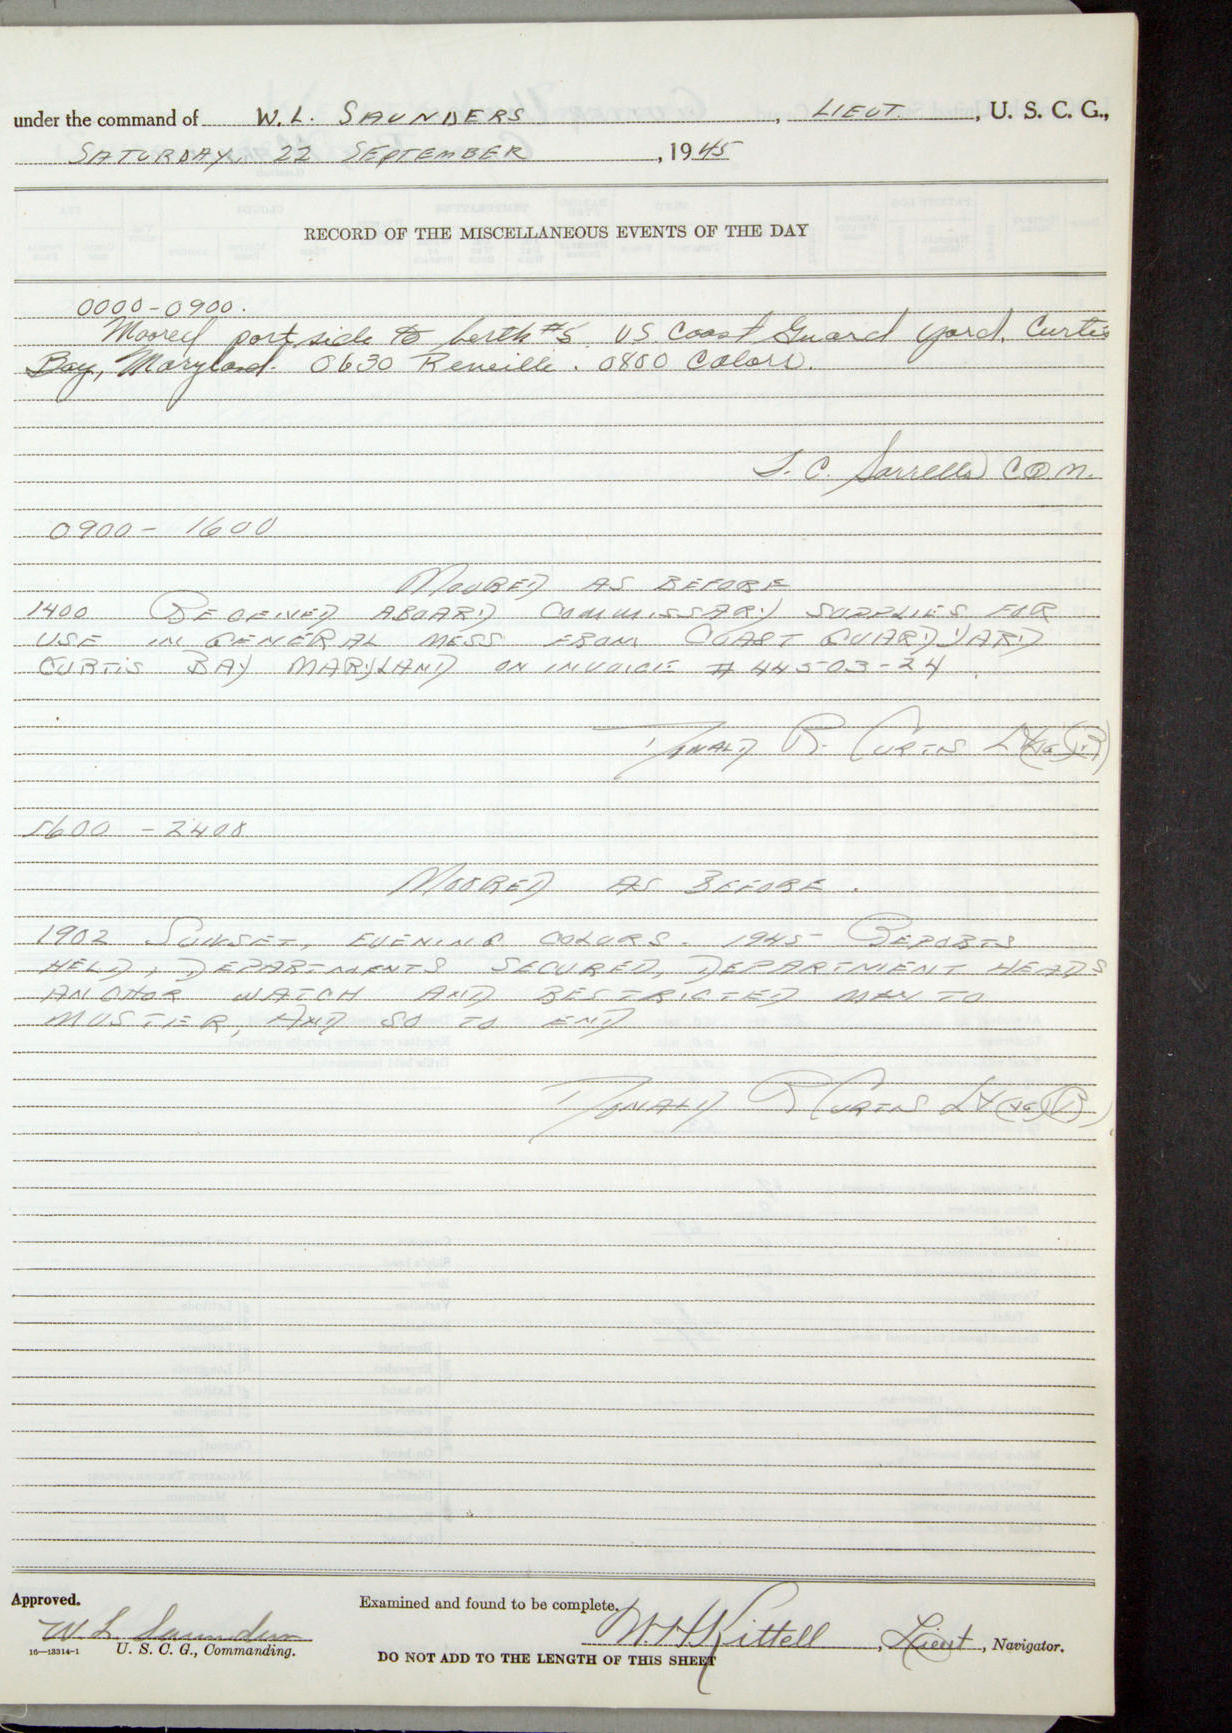 under the command of W. L. SAUNDERS, LIEUT., U. S. C. G.,
SATURDAY, 22 SEPTEMBER, 1945
RECORD OF THE MISCELLANEOUS EVENTS OF THE DAY
0000-0900.
Moored port side to berth #5 US Coast Guard yard, Curtis
Bay, Maryland. 0630 Reveille. 0800 Colors.
C.Q.M.
0900 - 1600
MOORED AS BEFORE
1400 RECEIVED ABOARD COMMISSARY SUPPLIES FOR
USE IN GENERAL MESS FROM COAST GUARD YARD
CURTIS BAY MARYLAND ON INVOICE # 44503-24.
DONALD R. CURTIS Lt(jg)(R)
1600 - 2400
MOORED AS BEFORE.
1902 SUNSET, EVENING COLORS. 1945 REPORTS
HELD, DEPARTMENTS SECURED, DEPARTMENT HEADS
ANCHOR WATCH AND RESTRICTED MEN TO
MUSTER, AND SO TO END
DONALD R CURTIS Lt(jg)(R)
Approved.
W. L. Saunders
U. S. C. G., Commanding.
16—13314-1
Examined and found to be complete.
W H Kittell, Lieut, Navigator.
DO NOT ADD TO THE LENGTH OF THIS SHEET